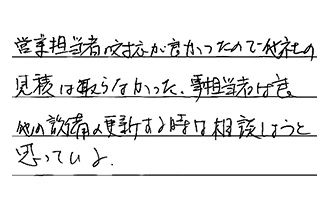 営業担当者の対応が良かったので他社の
見積は取らなかった、担当者は
他の設備の更新する時は相談しようと
思っている.